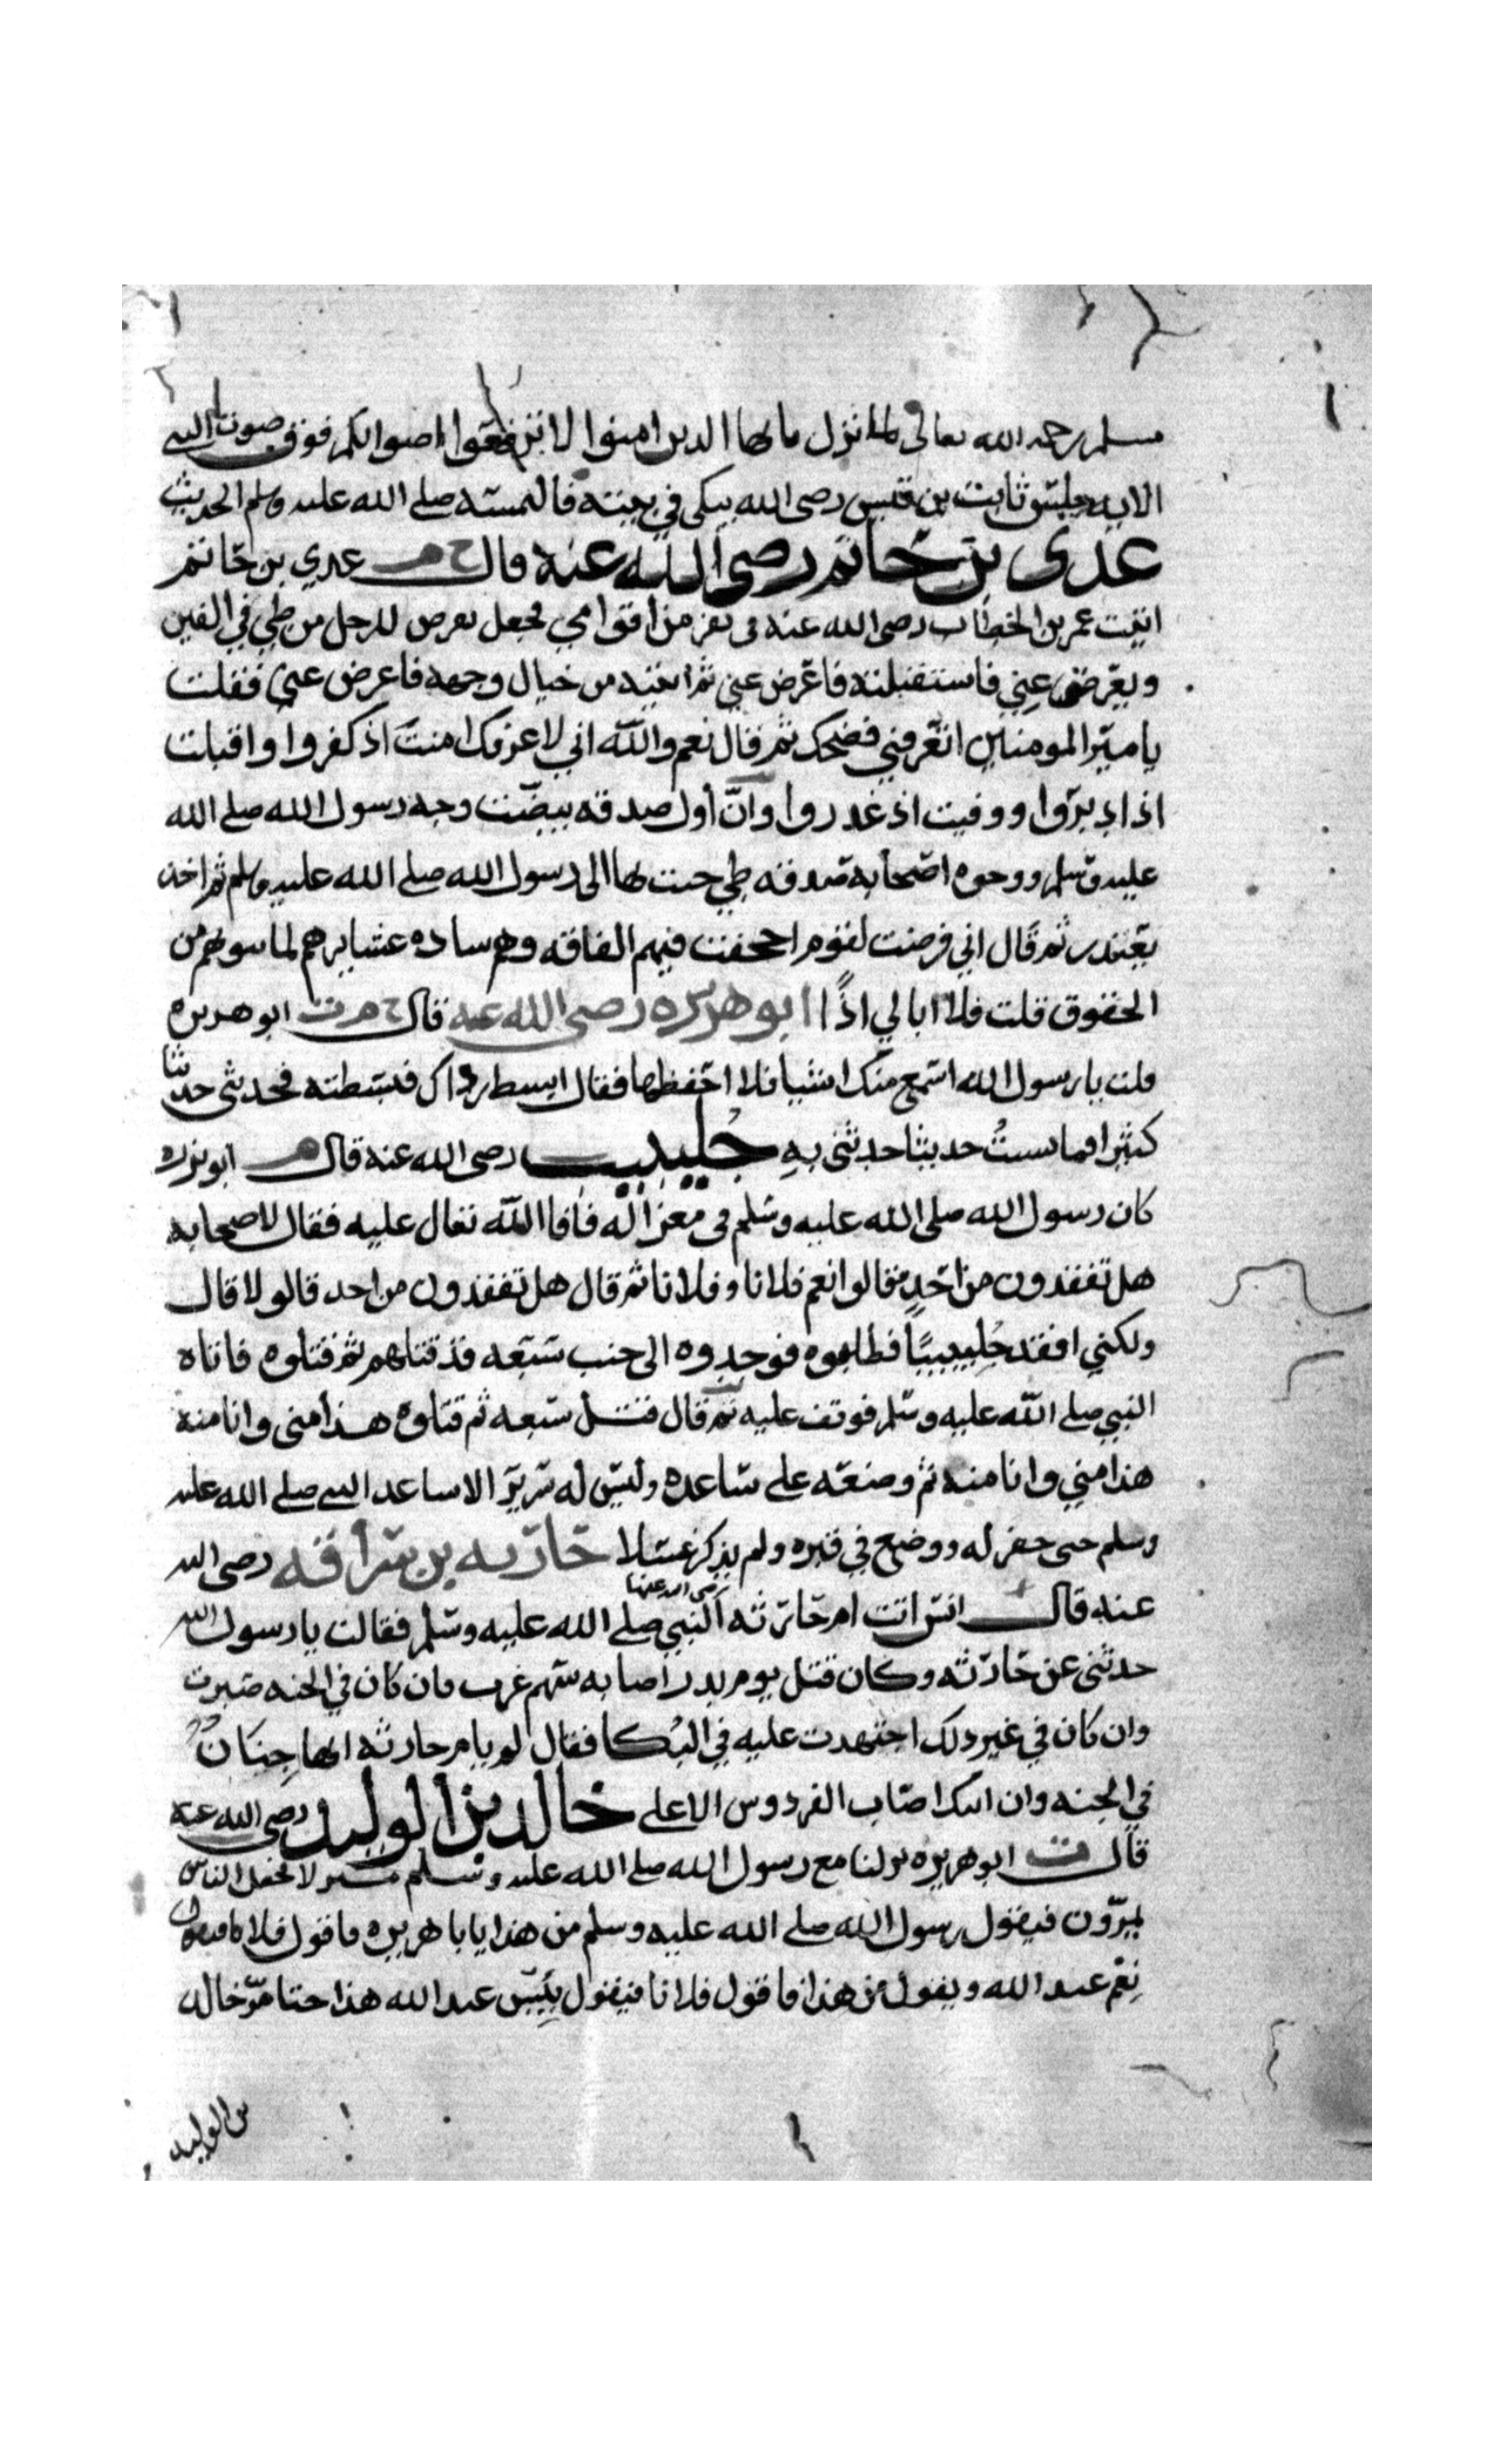 مسلم رحمه الله تعالى لما نزل يايها الذين امنوا لا ترفعوا اصواتكم فوق صوت النبي
الايه جلس ثابت بن قيس رضي الله يبكي في بيته فالتمسه صلى الله عليه وسلم الحديث
عدي بن حاتم رضي الله عنه قال خ م عدي بن حاتم
اتيت عمر بن الخطاب رضي الله عنه في نفر من اقوامي فجعل يعرض للرجل من طي في الفين
ويعرض عني فاستقبلته فاعرض عني ثم اتيته من خيال وجهه فاعرض عني فقلت
يا مير المومنين اتعرفني فضحك ثم قال نعم والله اني لا عرفك امنت اذ كفروا واقبلت
اذ ادبروا ووفيت اذ غدروا وان أول صدقه بيضت وجه رسول الله صلى الله
عليه وسلم ووجوه اصحابه صدقه طي جيت بها الى رسول الله صلى الله عليه وسلم ثم اخذ
يعتذر ثم قال اني فرضت لقوم اجحفت فيهم الفاقه وهم ساده عشايرهم لما سوبهم من
الحقوق قلت فلا ابالي اذًا ابو هريره رضي الله عنه قال خ م ت ابو هريره
قلت يا رسول الله اسمع منك اشيا فلا احفظها فقال ابسط رداك فبسطته فحدثني حديثا
كثيرا فما نسيتُ حديثا حدثني بهِ جُليبيب رضي الله عنه قال م ابو برزه
كان رسول الله صلى الله عليه وسلم في مغزا له فافا الله تعال عليه فقال لاصحابه
هل تفقدون من احدٍ فقالوا نعم فلانا وفلانا ثم قال هل تفقدون من احد قالو لا قال
ولكني افقد جُليبيبًا فطلبوه فوجدوه الى جنب سبعه قد قتلهم ثم قتلوه فاتاه
النبي صلى الله عليه وسلم فوقف عليه ثم قال قتل سبعه ثم قتلوه هذا مني وانا منه
هذا مني وانا منه ثم وضعه على ساعده وليس له سرير الا ساعد النبي صلى الله عليه
وسلم حتى حفر له ووضع في قبره ولم يذكر غسلا حارثه بن سراقه رضي الله
عنه قال انس اتت ام حارثه رضي الله عنها النبي صلى الله عليه وسلم فقالت يا رسول الله
حدثني عن حارثه وكان قتل يوم بدر اصابه سهم غرب فان كان في الجنه صبرت
وان كان في غير ذلك اجتهدت عليه في البُكا فقال لم يا م حارثه انها جِنَانٌ
في الجنه وان ابنك اصاب الفردوس الاعلى خالد بن الوليد رضي الله عنه
قال ت ابو هريره نزلنا مع رسول الله صلى الله عليه وسلم منزلا فجعل الناس
يمرّون فيقول رسول الله صلى الله عليه وسلم من هذا يابا هريره فاقول فلان فيقول
نِعْم عبد الله ويقول من هذا فاقول فلانا فيقول بِئس عبد الله هذا حتا مرّ خالد
بن الوليد